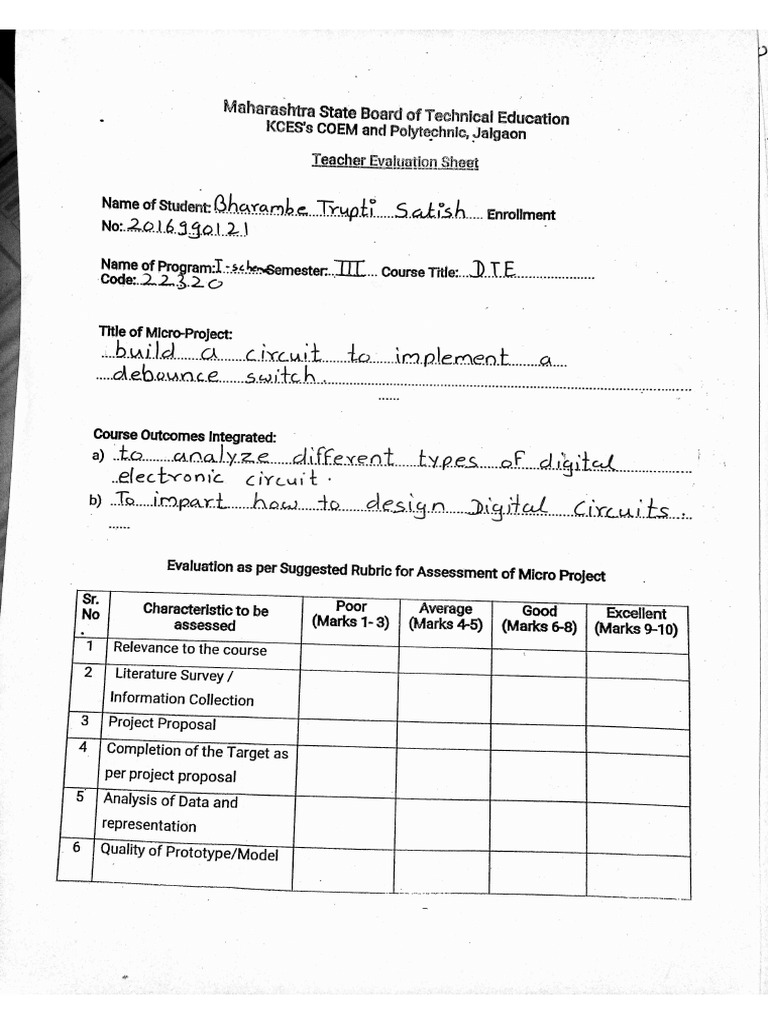 Maharashtra State Board of Technical Education
KCES's COEM and Polytechnic, Jalgaon
Teacher Evaluation Sheet
Name of Student: Bharambe Trupti Satish Enrollment
No: 2016990121
Name of Program: I-schem Semester: III Course Title: DTE
Code: 22320
Title of Micro-Project:
build a circuit to implement a
debounce switch.
Course Outcomes Integrated:
a) to analyze different types of digital
electronic circuit.
b) To impart how to design Digital Circuits.
Evaluation as per Suggested Rubric for Assessment of Micro Project
Sr. No . Characteristic to be assessed Poor (Marks 1- 3) Average (Marks 4-5) Good (Marks 6-8) Excellent (Marks 9-10)
1 Relevance to the course
2 Literature Survey /
Information Collection
3 Project Proposal
4 Completion of the Target as
per project proposal
5 Analysis of Data and
representation
6 Quality of Prototype/Model